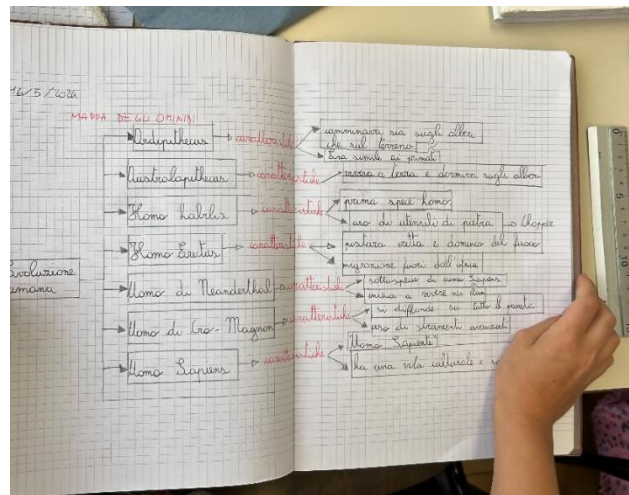 16/5/2024
MAPPA DEGLI OMINIDI
Evoluzione
umana
Ardipithecus
caratteristiche
camminava sia sugli alberi
che sul terreno
Era simile ai primati
Australopithecus
caratteristiche
viveva a terra e dormiva sugli alberi
Homo habilis
caratteristiche
prima specie homo
uso di utensili di pietra
Chopper
Homo Erectus
caratteristiche
postura eretta e dominio del fuoco
migrazione fuori dall'africa
Uomo di Neanderthal
caratteristiche
sottospecie di
a vivere nei clan
Uomo di Cro-Magnon
caratteristiche
si diffonde su tutto il pianeta
uso di strumenti avanzati
Homo Sapiens
caratteristiche
"Uomo Sapiente"
ha una vita culturale e